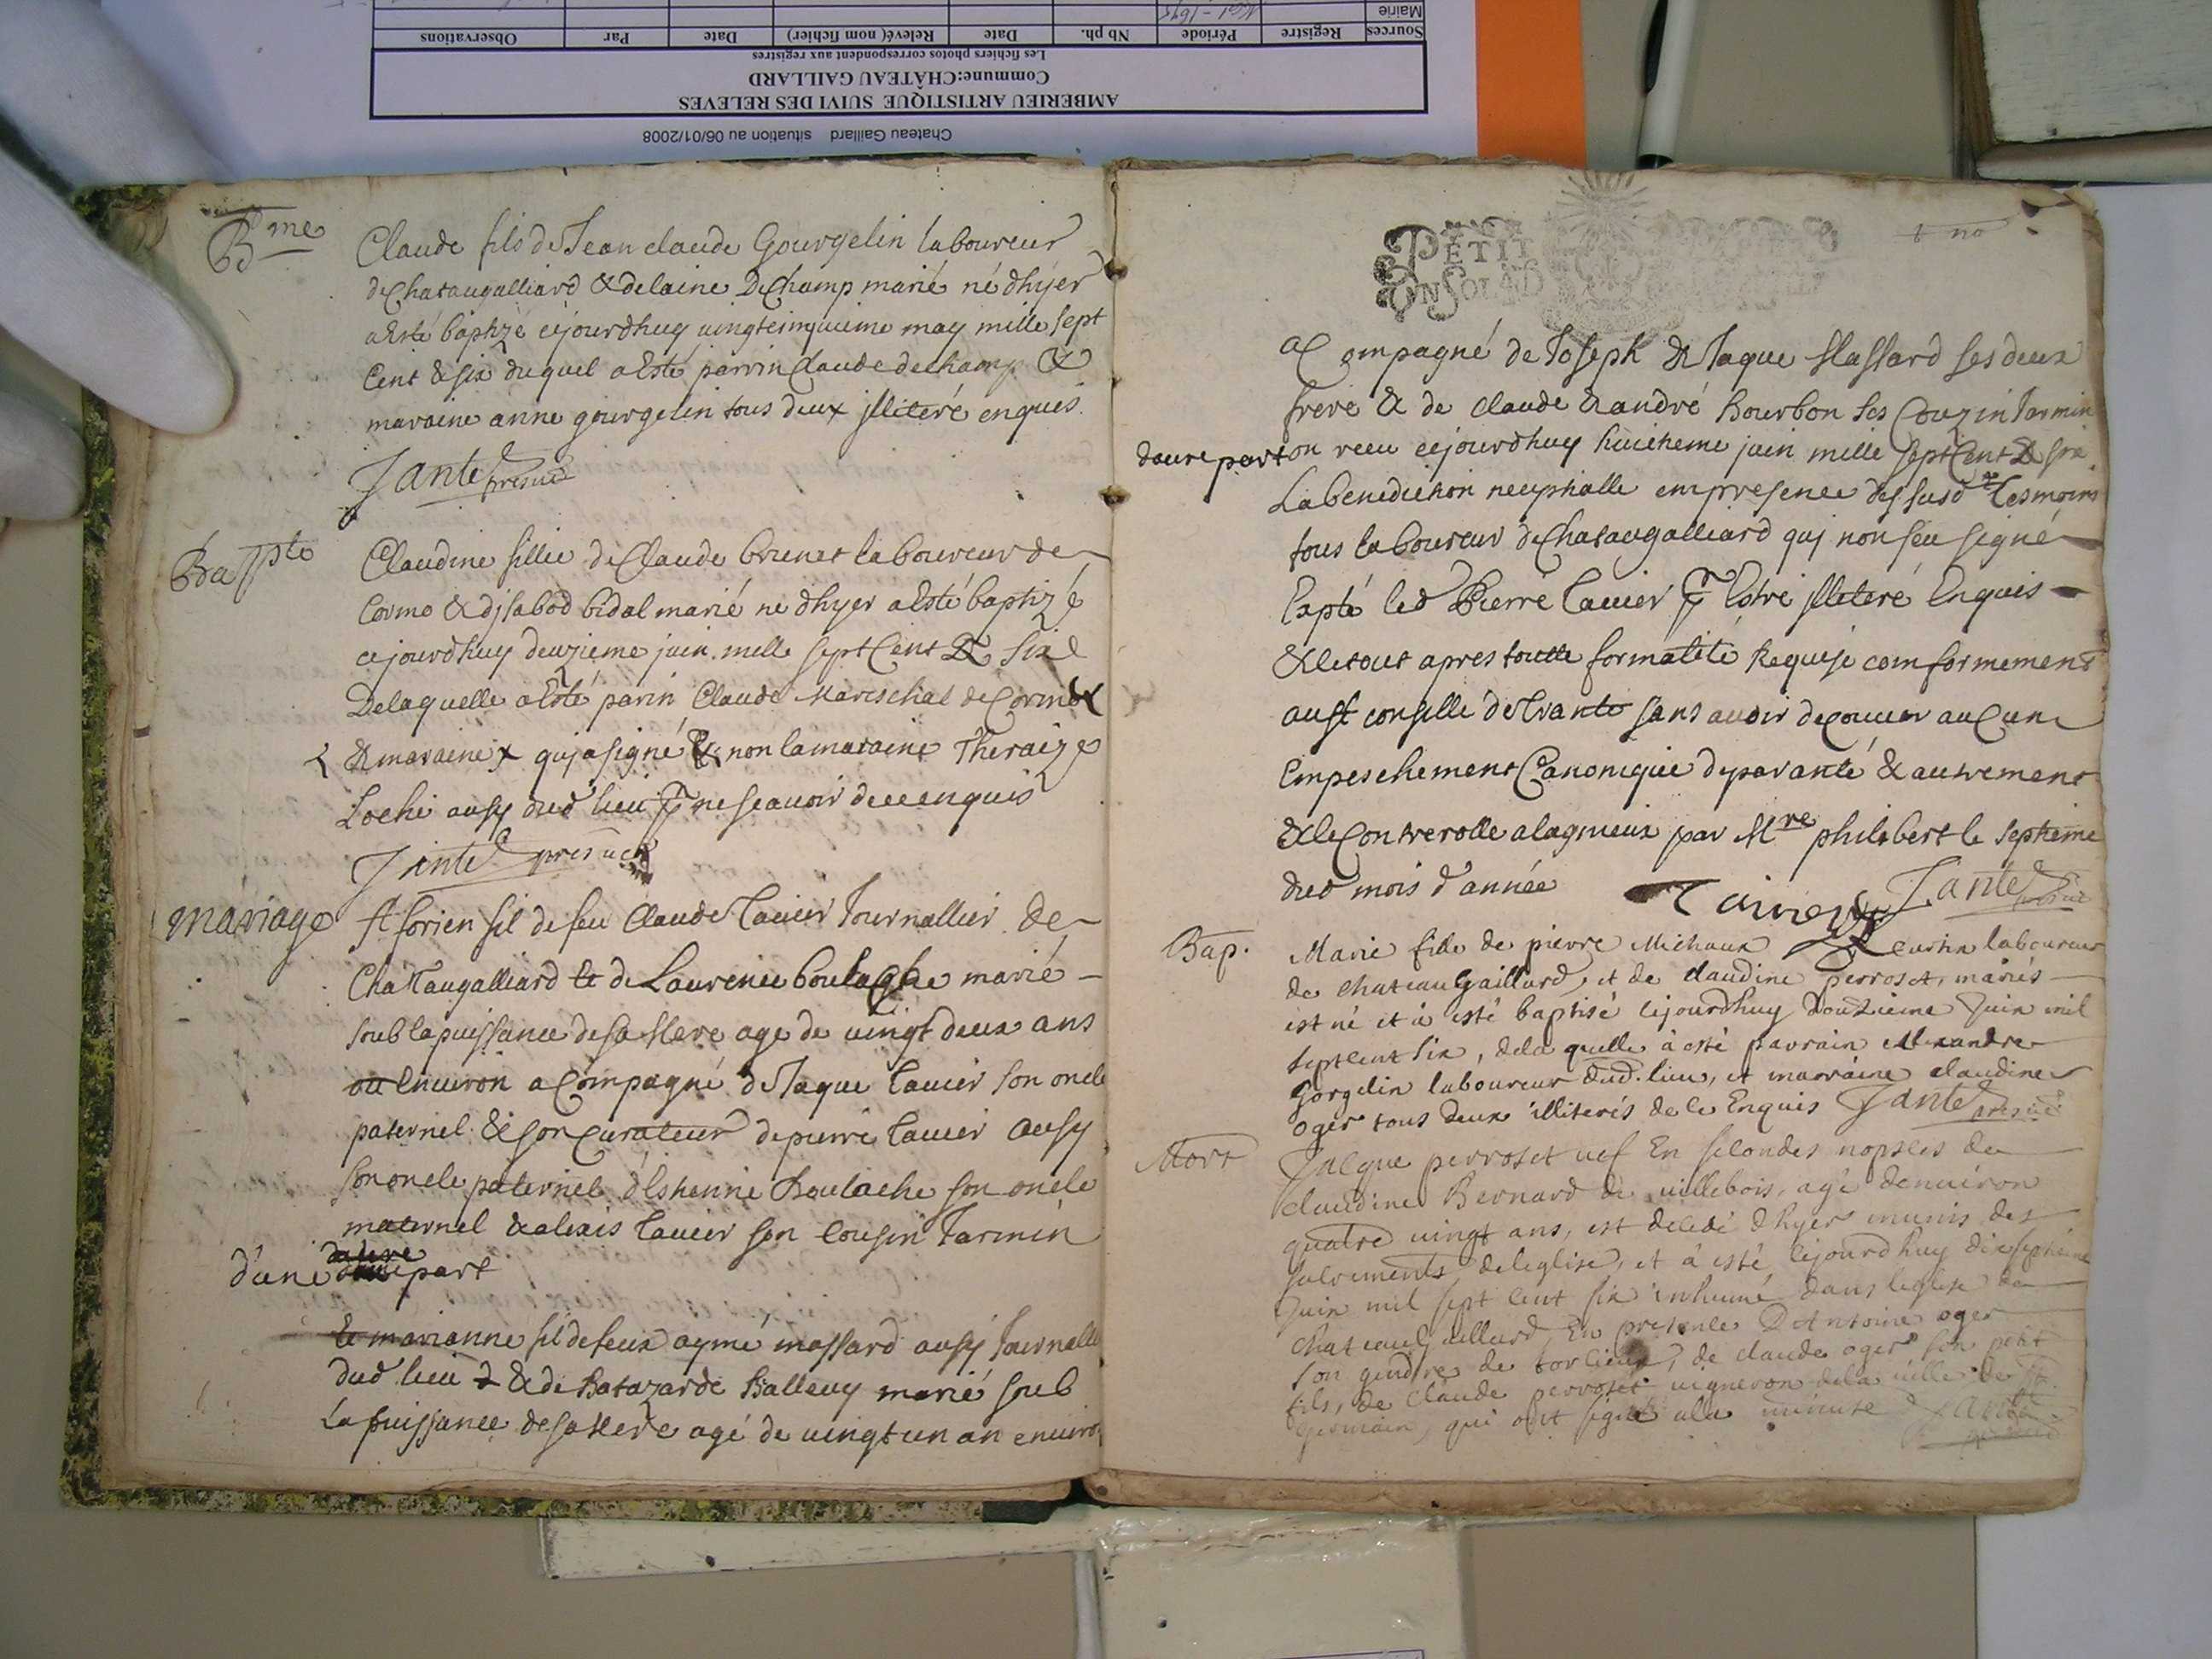 Chateau Gaillard situation au 06/01/2008
AMBERIEU ARTISTIQUE SUIVI DES RELEVES
Commune:CHÂTEAU GAILLARD
Les fichiers photos correspondent aux registres
Sources Registre Période Nb ph. Date Relevé( nom fichier) Date Par Observations
Mairie
Bme
Claude fils de Jean claude Gourgelin laboureur
de Chataugalliard & delaine Dechamp marié né dhÿer
a Esté baptizé cejourdhuy uingteinquieme may mille sept
Cent & six duquel a Esté parrin Claude dechamp &
maraine anne gourgelin tous deux jlliteré enquis.
Jante
Claudine fillie de Claude brunet laboureur de
Cormo & djsabod bidal marié ne dhyer a Esté baptizé
cejourdhuy deuzieme juin mille sept Cent & Six
Delaquelle a Esté parin Claude Mareschal de Cormo
& maraine x quj a signé & non la maraine Theraize
Lochi ausy dud lieu p ne scauoir de ce enquis
Jante
mariage
florien fil de feu Claude Cauier Journallier de
Chattaugalliard et de Laurence boulache marié
soub la puissance de sa Mere age de uingt deux ans
ou enuiron acompagné de Jaque Cauier son oncle
paternel & son curateur de pierre Cauier ausy
son oncle paternel d'Estienne Boulache son oncle
maternel & alexis Cauier son Cousin Jarmin
d'une part
Et marianne fil de feux aymé massard ausÿ Journallie
dud lieu & de Batazarde Balleuy marié soub
La puissance de sa Mere agé de uingt un an enuiron
PETIT
UN SOL
acompagné de Joseph & Jaque Massard ses deux
frere & de claude & andré Bourbon ses Couzin Jarmin
daure part on receu cejourdhuy huitieme juin mille sept Cent & six
La benediction neuptialle en presence des susd tesmoins
tous laboureur de Chataugalliard quj non seu signé
Capté led Pierre Cauier p Estre jlliteré Enquis
& le tout apres toutte formalité Requise comformement
aust consille de trante sans auoir decouuer aucune
Empeschement Canonique dyparanté & autrement
& le Controrolle a lagnieux par Mre philibert le septieme
dud mois d'année
Jante
Bap.
Marie fille de pierre Michaux laboureur
de chateau Gaillard, et de claudine perroset, mariés
est né et à esté baptisé cejourdhuy Douzieme Juin mil
sept cent six, dela quelle à esté parrain Alexandre
Gorgelin laboureur dud. lieu, et marraine claudine
oger tous deux illiterés de ce Enquis Jante
Mort
Jacque perroset uef En secondes nopses de
claudine Bernard de uillebois, agé denuiron
quatre uingt ans, est decedé dhyer munis des
sacrements de leglise, et à esté cejourdhuy dix septieme
Juin mil sept cent six inhumé dans leglise de
chateau gaillard, En presence D'Antoine oger
son gendre de torcieux, de claude oger son petit
fils, de Claude perroset uigneron dela uille de St
germain, qui ont signé ala minute Jante